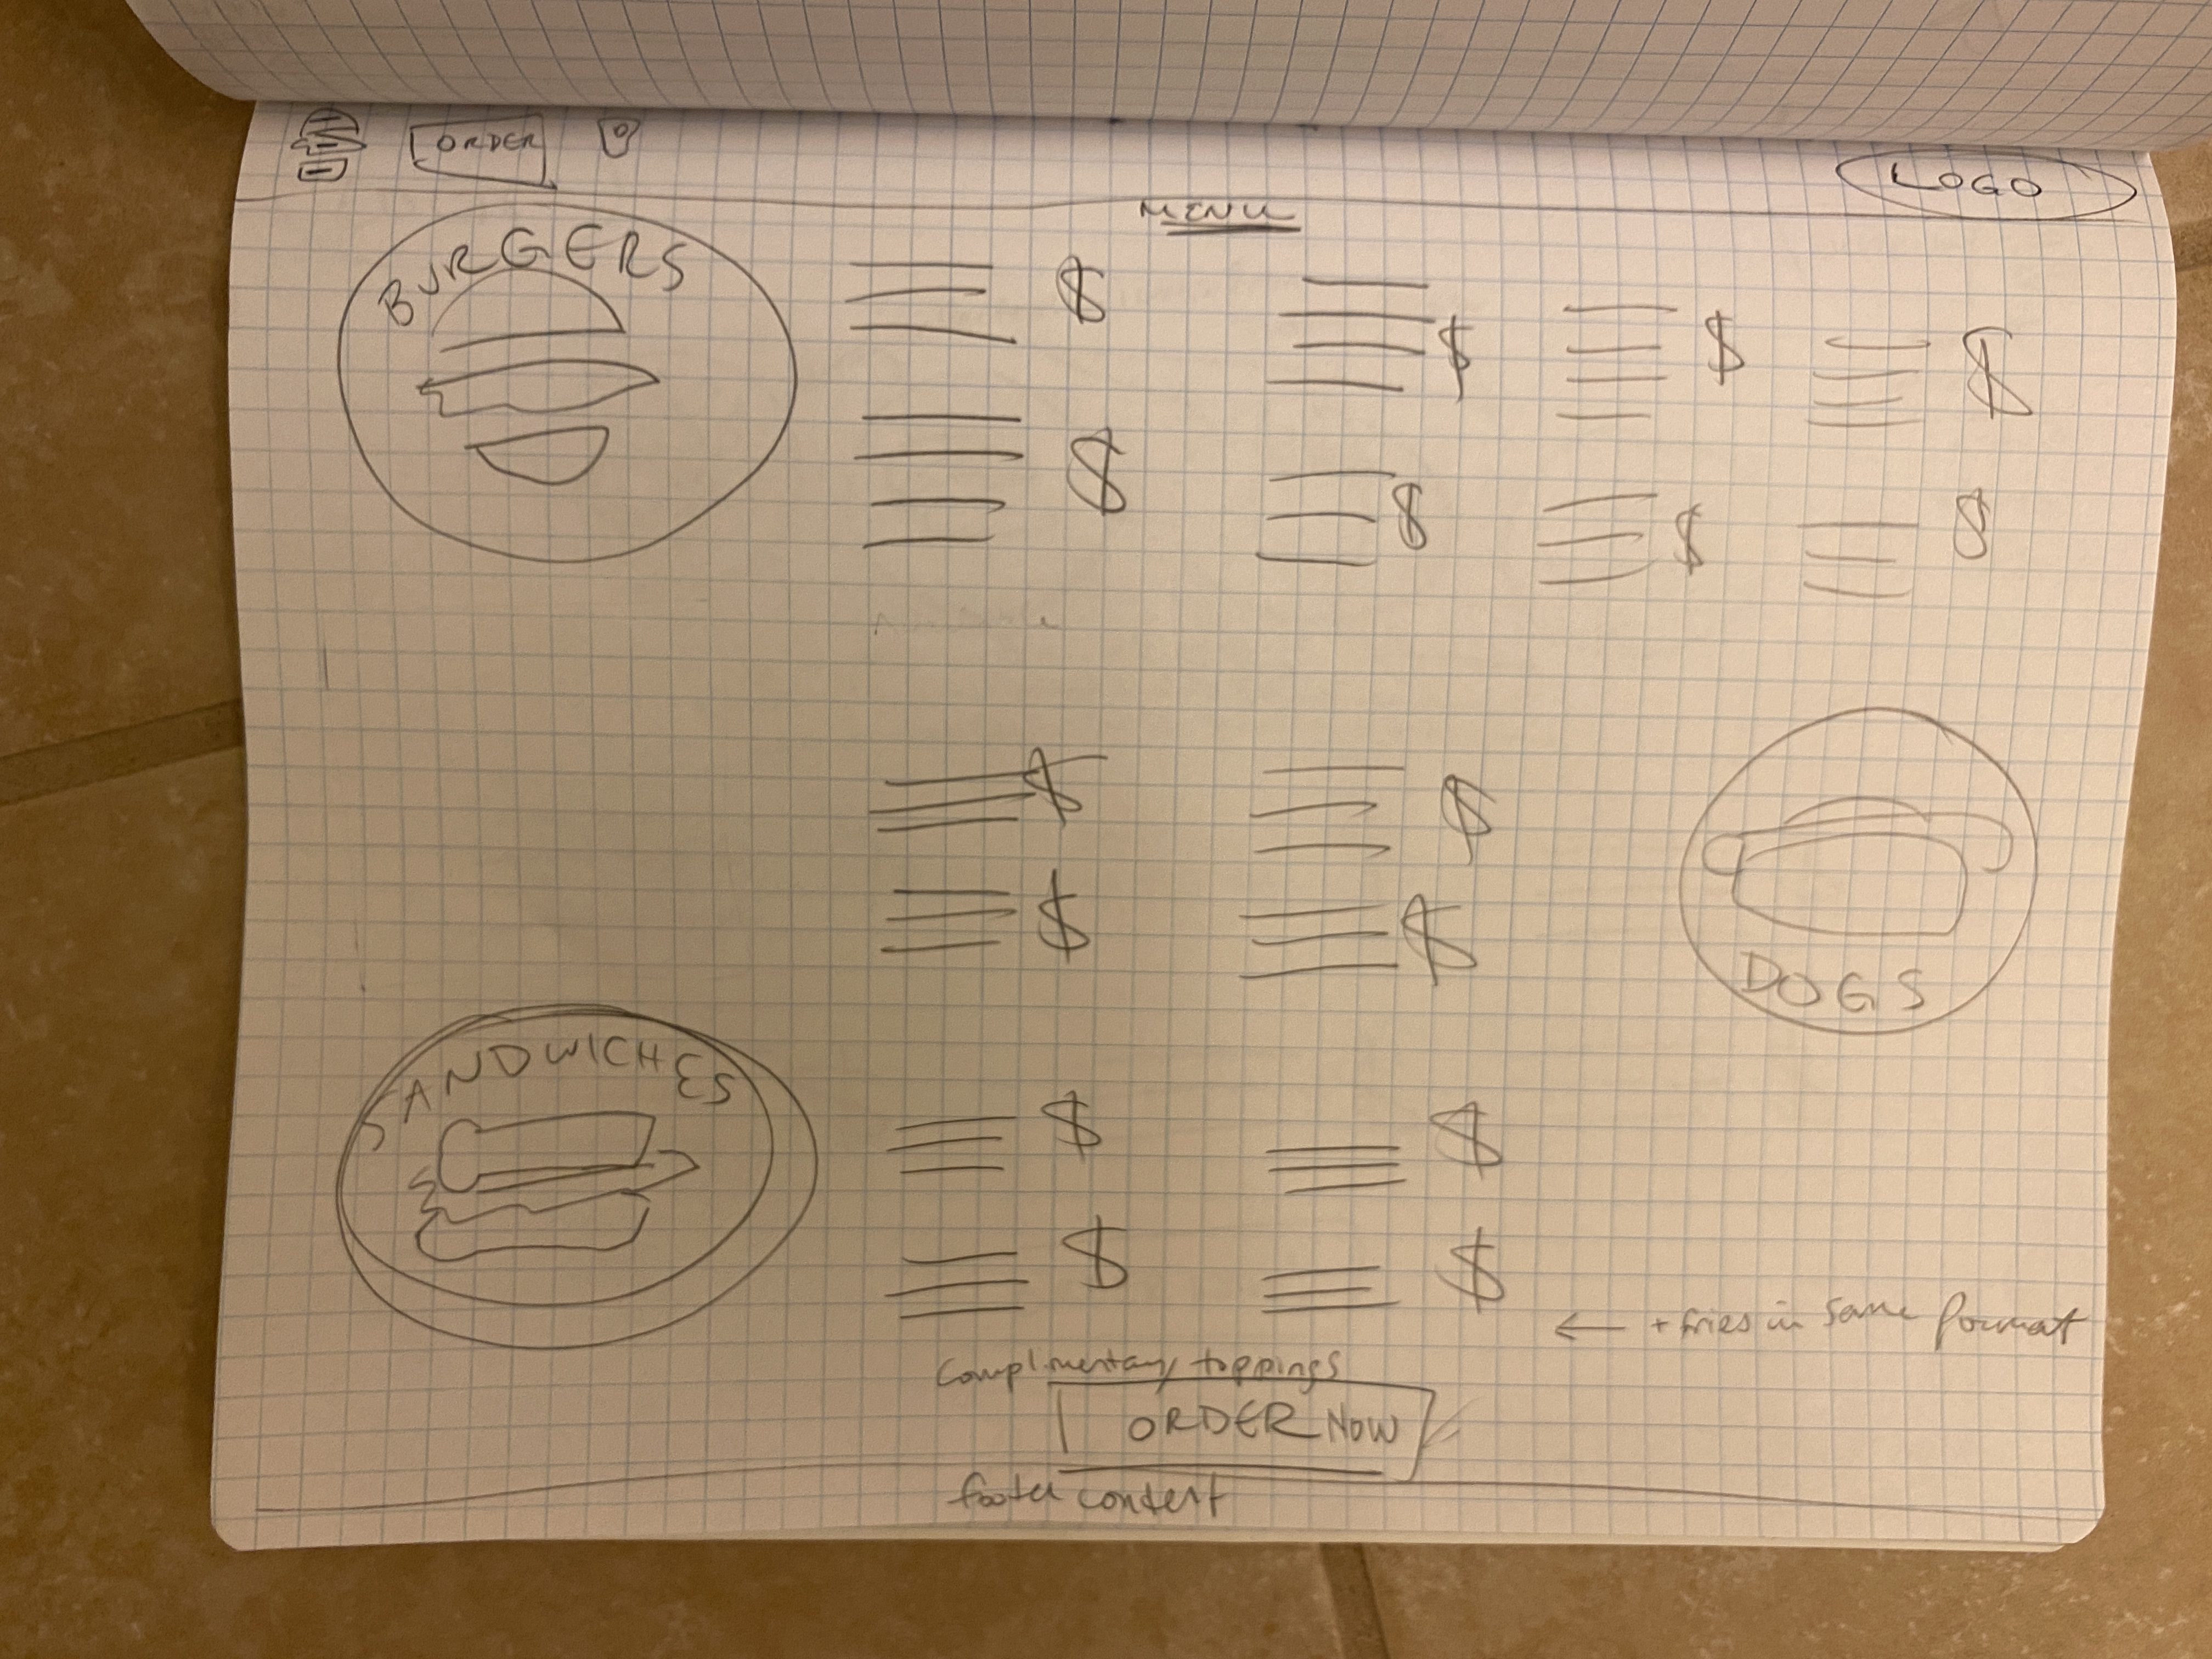 ORDER
LOGO
MENU
BURGERS
$ $ $ $
$ $ $ $
$ $
$ $
DOGS
SANDWICHES
$ $
$ $
← + fries in same format
Complimentary toppings
ORDER NOW
footer content